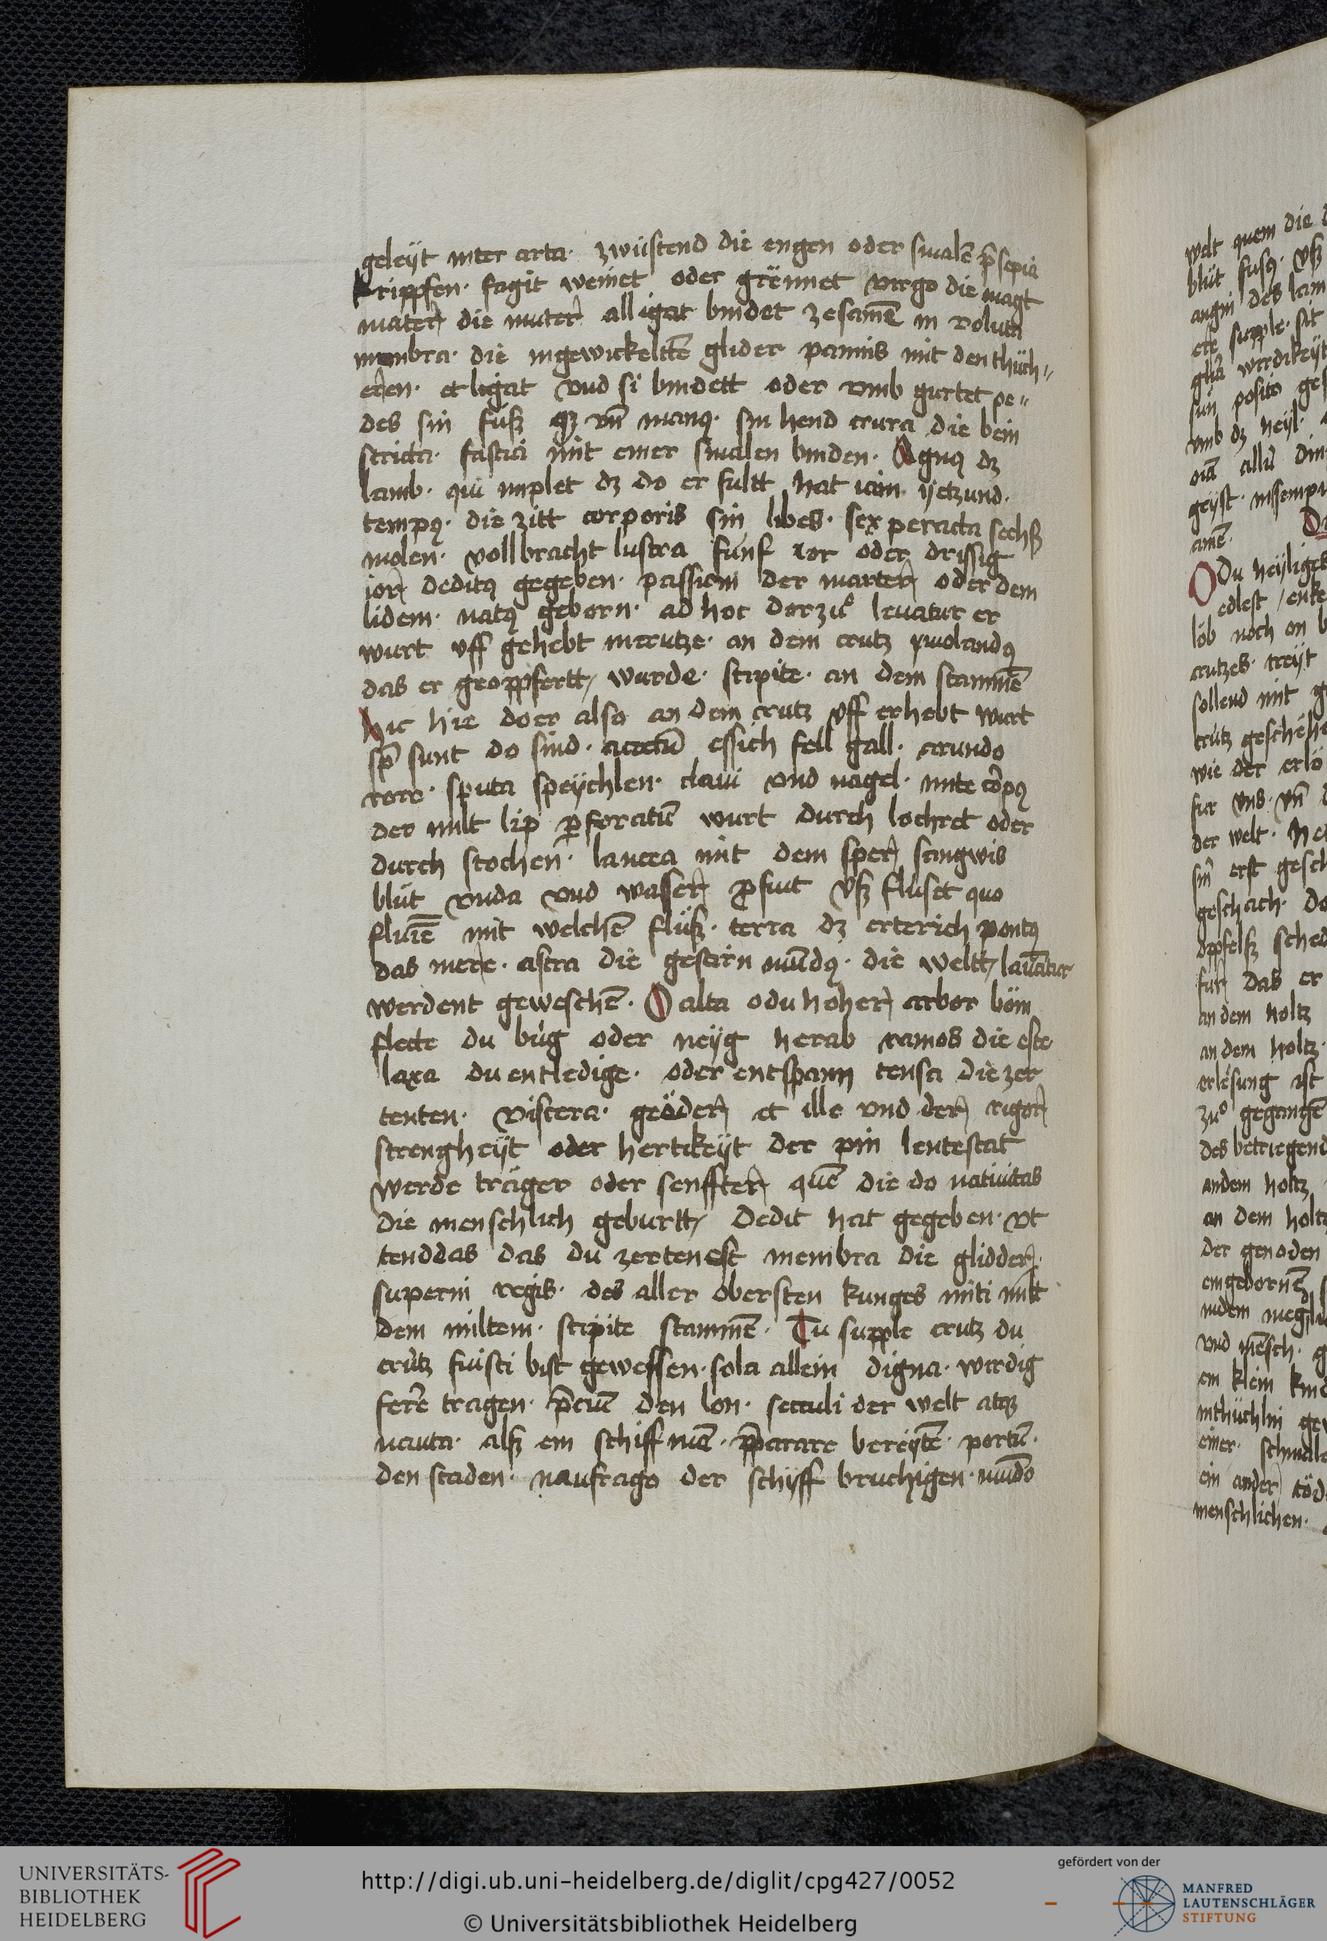 geleyt inter arta· zwüstend die engen oder smalē p̄sepia
krippfen· fagit weinet oder grēnnet virgo die magt
mater die muter alligat bindet zesamē in voluta
membra· die ingewickeltē glider pannis mit den thüch〃
eren· et ligat vnd si bindett oder vmb gurtet pe〃
des sin füß qȝ vn̄ manꝰ· sin hend crura die bein
stricta· fascia mit einer smalen binden· Agnꝰ dȝ
lamb· qui implet dȝ do er fultt hat iam yetzund·
tempꝰ· die zitt corporis sin libes· sex peracta sechß
molen· vollbracht lustra funf ior oder drissig
ior deditꝰ gegeben· passioni der marter oder dem
lidem· natꝰ geborn· ad hoc dorzuͦ leuatur er
wurt vff gehebt in crutze· an dem crutz ymolandꝰ
das er geoppfertt wurde· stipite· an dem stammē
hic hie do er also an dem crutz vff erhebt wurt
sp̄ sunt do sind· acetū essich fell gall· arundo
rore· sputa speychlen· claui vnd nagel· mite corpꝰ
der milt lip ꝑforatū wurt durch lochret oder
durch stochen· lancea mit dem sper sangwis
blüt vnda vnd wasser ꝓfluit vß flüset quo
flumē mit welchē flüß· terra dȝ erterich pontꝰ
das mere· astra die gestirn mūdꝰ· die weltt lauātur
werdent geweschē· O alta o du hoher arbor böm
flecte du büg oder neyg herab ramos die este
laxa du entledige· oder entspann tensa die zer
tenten· viscera· geöder et ille vnd der rigor
strengheyt oder hertikeyt der pin lentescat
werde träger oder senffter quē die do natiuitas
die menschlich geburtt dedit hat gegeben· vt
tenddas das du zertenest membra die glidder·
superni regis· des aller obersten kunges miti mit
dem miltem· stipite stammē· Tu supple crutz du
crütz fuisti bist gewessen· sola allein digna· wirdig
ferre tragen· p̄ciū den lon· seculi der welt atqȝ
nauta· alß ein schiff mā· p̄parare bereytē· portū·
den staden· naufrago der schyff bruchigen· mūdo
welt quem die
blüt fusꝰ· vß
angni des lam
ere supple· sit
glia wirdikeyt
sun posito
vmb dȝ heyl·
oīa allü din
geyst· in semp
amē·
O du heyliges
edlest
lob noch on
crutzes· treyt
sollend mit
crütz gescheh
wie der erlö
fur vns· vn̄
der welt·
sin̄ erst gesch
geschach· do
dppfelß sched
fur das er
an dem holtz
an dem holtz·
erlösung ist
zuͦ gegangē
des betriegend
an dem holtz
an dem holtz
der genoden
eingebornē
vnd mēsch·
ein klein kind
in thüchlin
einer· schmale
ein ander töd
menschlichen·
UNIVERSITÄTS-
BIBLIOTHEK
HEIDELBERG
http://digi.ub.uni-heidelberg.de/diglit/cpg427/0052
© Universitätsbibliothek Heidelberg
gefördert von der
MANFRED
LAUTENSCHLÄGER
STIFTUNG